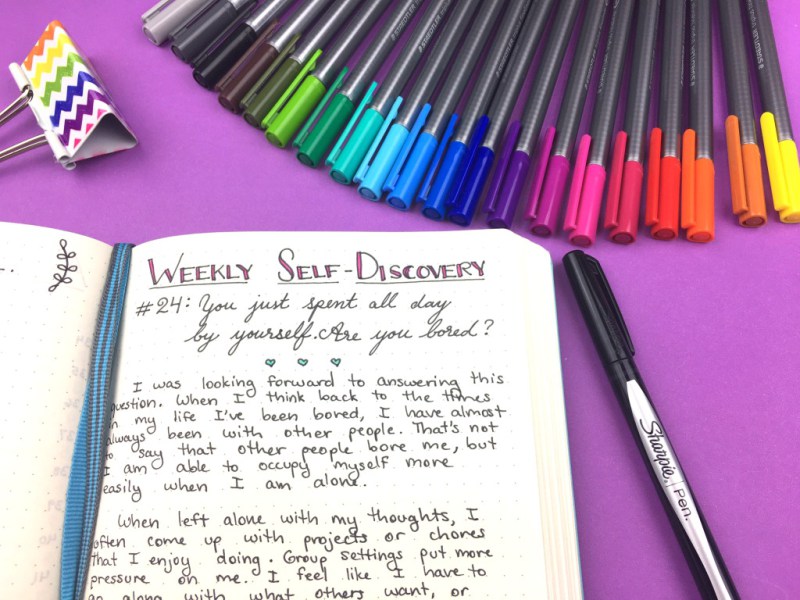 WEEKLY SELF-DISCOVERY
#24: You just spent all day
by yourself. Are you bored?
I was looking forward to answering this
question. When I think back to the times
in my life I've been bored, I have almost
always been with other people. That's not
to say that other people bore me, but
I am able to occupy myself more
easily when I am alone.
When left alone with my thoughts, I
often come up with projects or chores
that I enjoy doing. Group settings put more
pressure on me. I feel like I have to
go along with what others want, or
Sharpie. PEN.